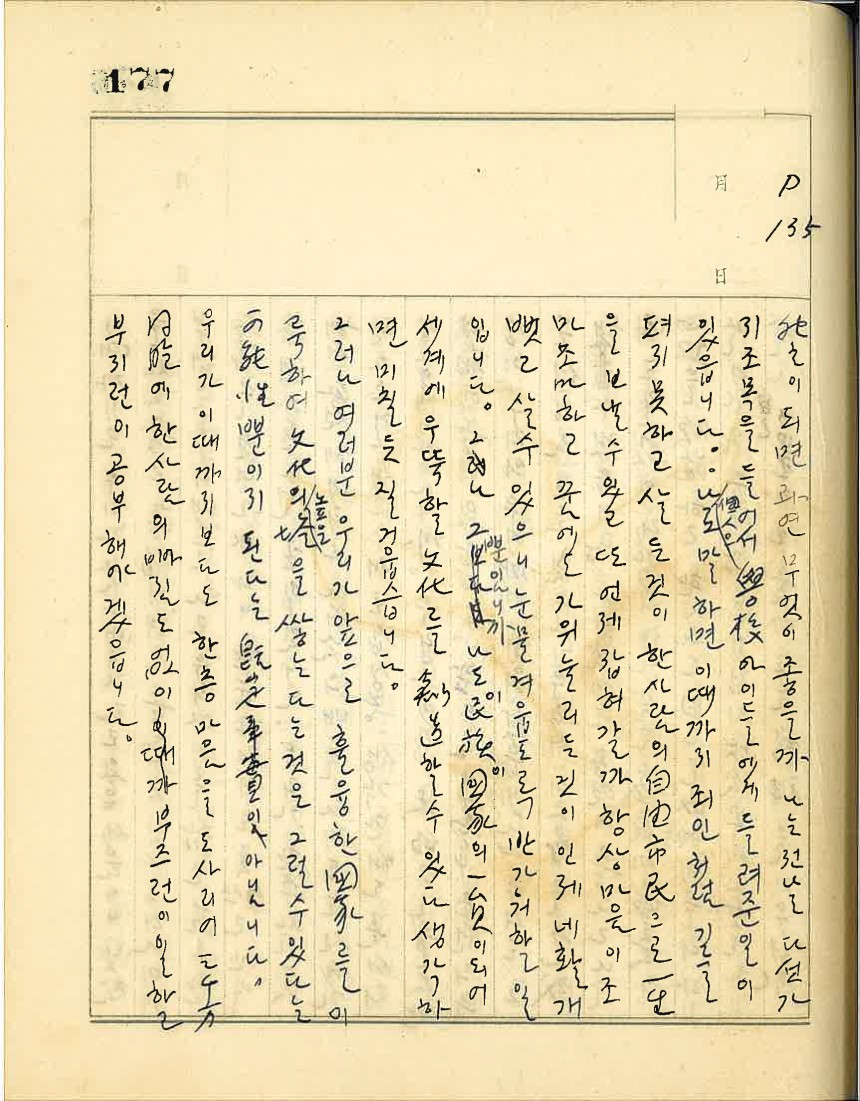 177
P
135
月
日
이 되면 과연 무엇이 좋을까 나는 전날 다섯가
지 조목을 들어서 學校 아이들에게 들려준 일이
있읍니다. 個人으로 말하면 이때까지 죄인처럼 길을
펴지 못하고 살든 것이 한사람의 自由市民으로 一生
을 보낼 수 있고 또 언제 잡혀갈까 항상 마음이 조
마조마하고 꿈에도 가위눌리든 것이 인제 네활개
뻣고 살 수 있으니 눈물겨웁도록 반가워할 일
입니다. 그러나 그뿐입니까 나도 이 民族 이 國家의 一員이 되어
세계에 우뚝할 文化를 創造할 수 있다 생각하
면 미칠 듯 질겁습니다.
그러나 여러분 우리가 앞으로 훌융한 國家를 이
룩하여 文化의 높은 을 쌓는다는 것은 그럴 수 있다는
可能性뿐이지 된다는 아닙니다.
우리가 이때까지보다도 한층 마음을 도사리어
에 한사람의 도 없이 이때까 부즈런이 일할
부지런이 공부해야겠읍니다.